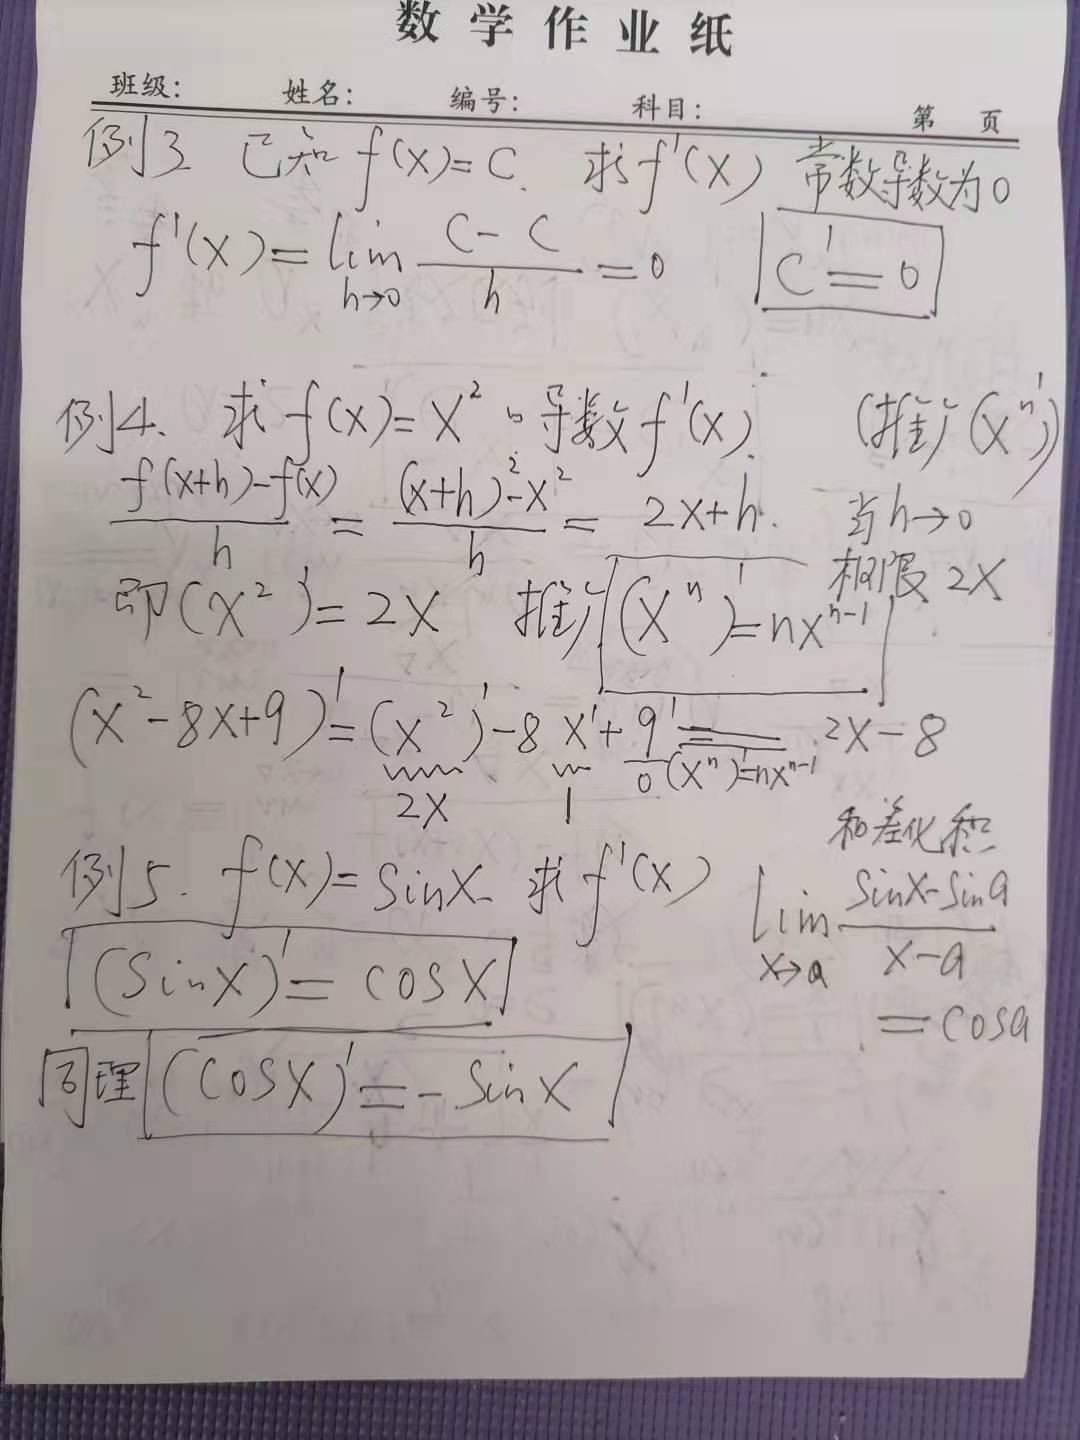 数学作业纸
班级: 姓名: 编号: 科目: 第 页
例3 已知 f(x)=C. 求f'(x) 常数导数为0
f'(x)=lim h→0 (C-C)/h =0 C'=0
例4. 求 f(x)=x² 导数 f'(x). (推广(xⁿ)')
(f(x+h)-f(x))/h = ((x+h)²-x²)/h = 2x+h. 当h→0
极限 2x
即(x²)'=2x 推广 (xⁿ)'=nxⁿ⁻¹
(x²-8x+9)'=(x²)'-8x'+9' = 2x-8
2x 1 0 (xⁿ)'=nxⁿ⁻¹
和差化积
例5. f(x)=sinx. 求f'(x) lim x→a (sinx-sina)/(x-a)
(sinx)'=cosx =cosa
同理 (cosx)'=-sinx